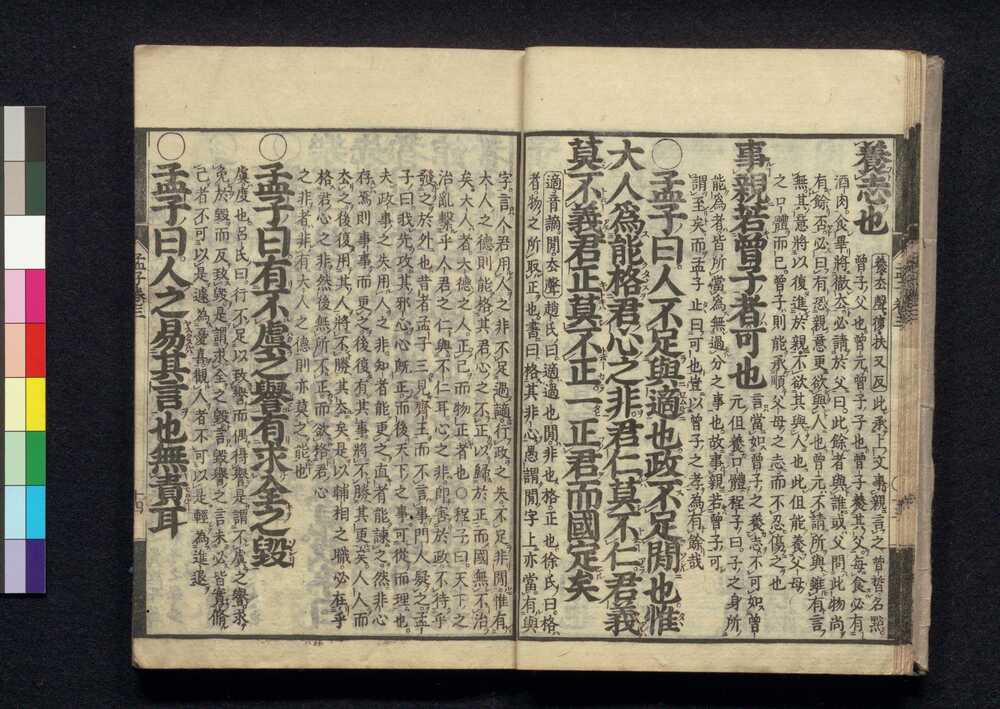 養志也
養去聲復扶又反此承上文事親言之曾晳名點
曾子父也曾元曾子子也曾子養其父每食必有
酒肉食畢將徹去必請於父曰此餘者與誰或父問此物尚
有餘否必曰有恐親意更欲與人也曾元不請所與雖有言
無其意將以復進於親不欲其與人也此但能養父母
之口體而已曾子則能承順父母之志而不忍傷之也
事親若曾子者可也
言當如曾子之養志不可如曾
元但養口體程子曰子之身所
能為者皆所當為無過分之事也故事親若曾子可
謂至矣而孟子止曰可也豈以曾子之孝為有餘哉
○孟子曰人不足與適也政不足閒也惟
大人爲能格君心之非君仁莫不仁君義
莫不義君正莫不正一正君而國定矣
適音謫閒去聲趙氏曰適過也閒非也格正也徐氏曰格
者物之所取正也書曰格其非心愚謂閒字上亦當有與
字言人君用人之非不足過謫行政之失不足非閒惟有
大人之德則能格其君心之不正以歸於正而國無不治
矣大人者大德之人正己而物正者也○程子曰天下之
治亂繫乎人君之仁與不仁耳心之非即害於政不待乎
發之於外也昔者孟子三見齊王而不言事門人疑之孟
子曰我先攻其邪心心既正而後天下之事可從而理也
夫政事之失用人之非知者能更之直者能諫之然非心
存焉則事事而更之後復有其事將不勝其更矣人人而
去之後復用其人將不勝其去矣是以輔相之職必在乎
格君心之非然後無所不正而欲格君心
之非者非有大人之德則亦莫之能也
○孟子曰有不虞之譽有求全之毀
虞度也呂氏曰行不足以致譽而偶得譽是謂不虞之譽求
免於毀而反致毀是謂求全之毀言毀譽之言未必皆實脩
己者不可以是遽為憂喜觀人者不可以是輕為進退
○孟子曰人之易其言也無責耳
孟子巻三
十四